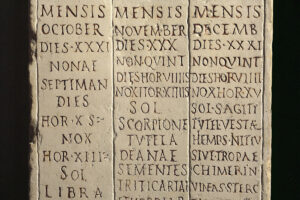 MENSIS
OCTOBER
DIES·XXXI
NONAE
SEPTIMAN
DIES
HOR·X S
NOX
HOR·XIII
SOL
LIBRA
MENSIS
NOVEMBER
DIES·XXX
NON QVINT
DIES HOR VIIII
NOX HOR XIIII
SOL
SCORPIONE
TVTELA
DEANAE
SEMENTES
TRITICARIA
MENSIS
DECEMB
DIES·XXXI
NON QVINT
DIES HOR VIIII
NOX HOR XV
SOL·SAGIT
TVTEL VESTAE
HIEMIS·NITIV
SIVE TROPAE
CHIMERIN
VINEAS STERC